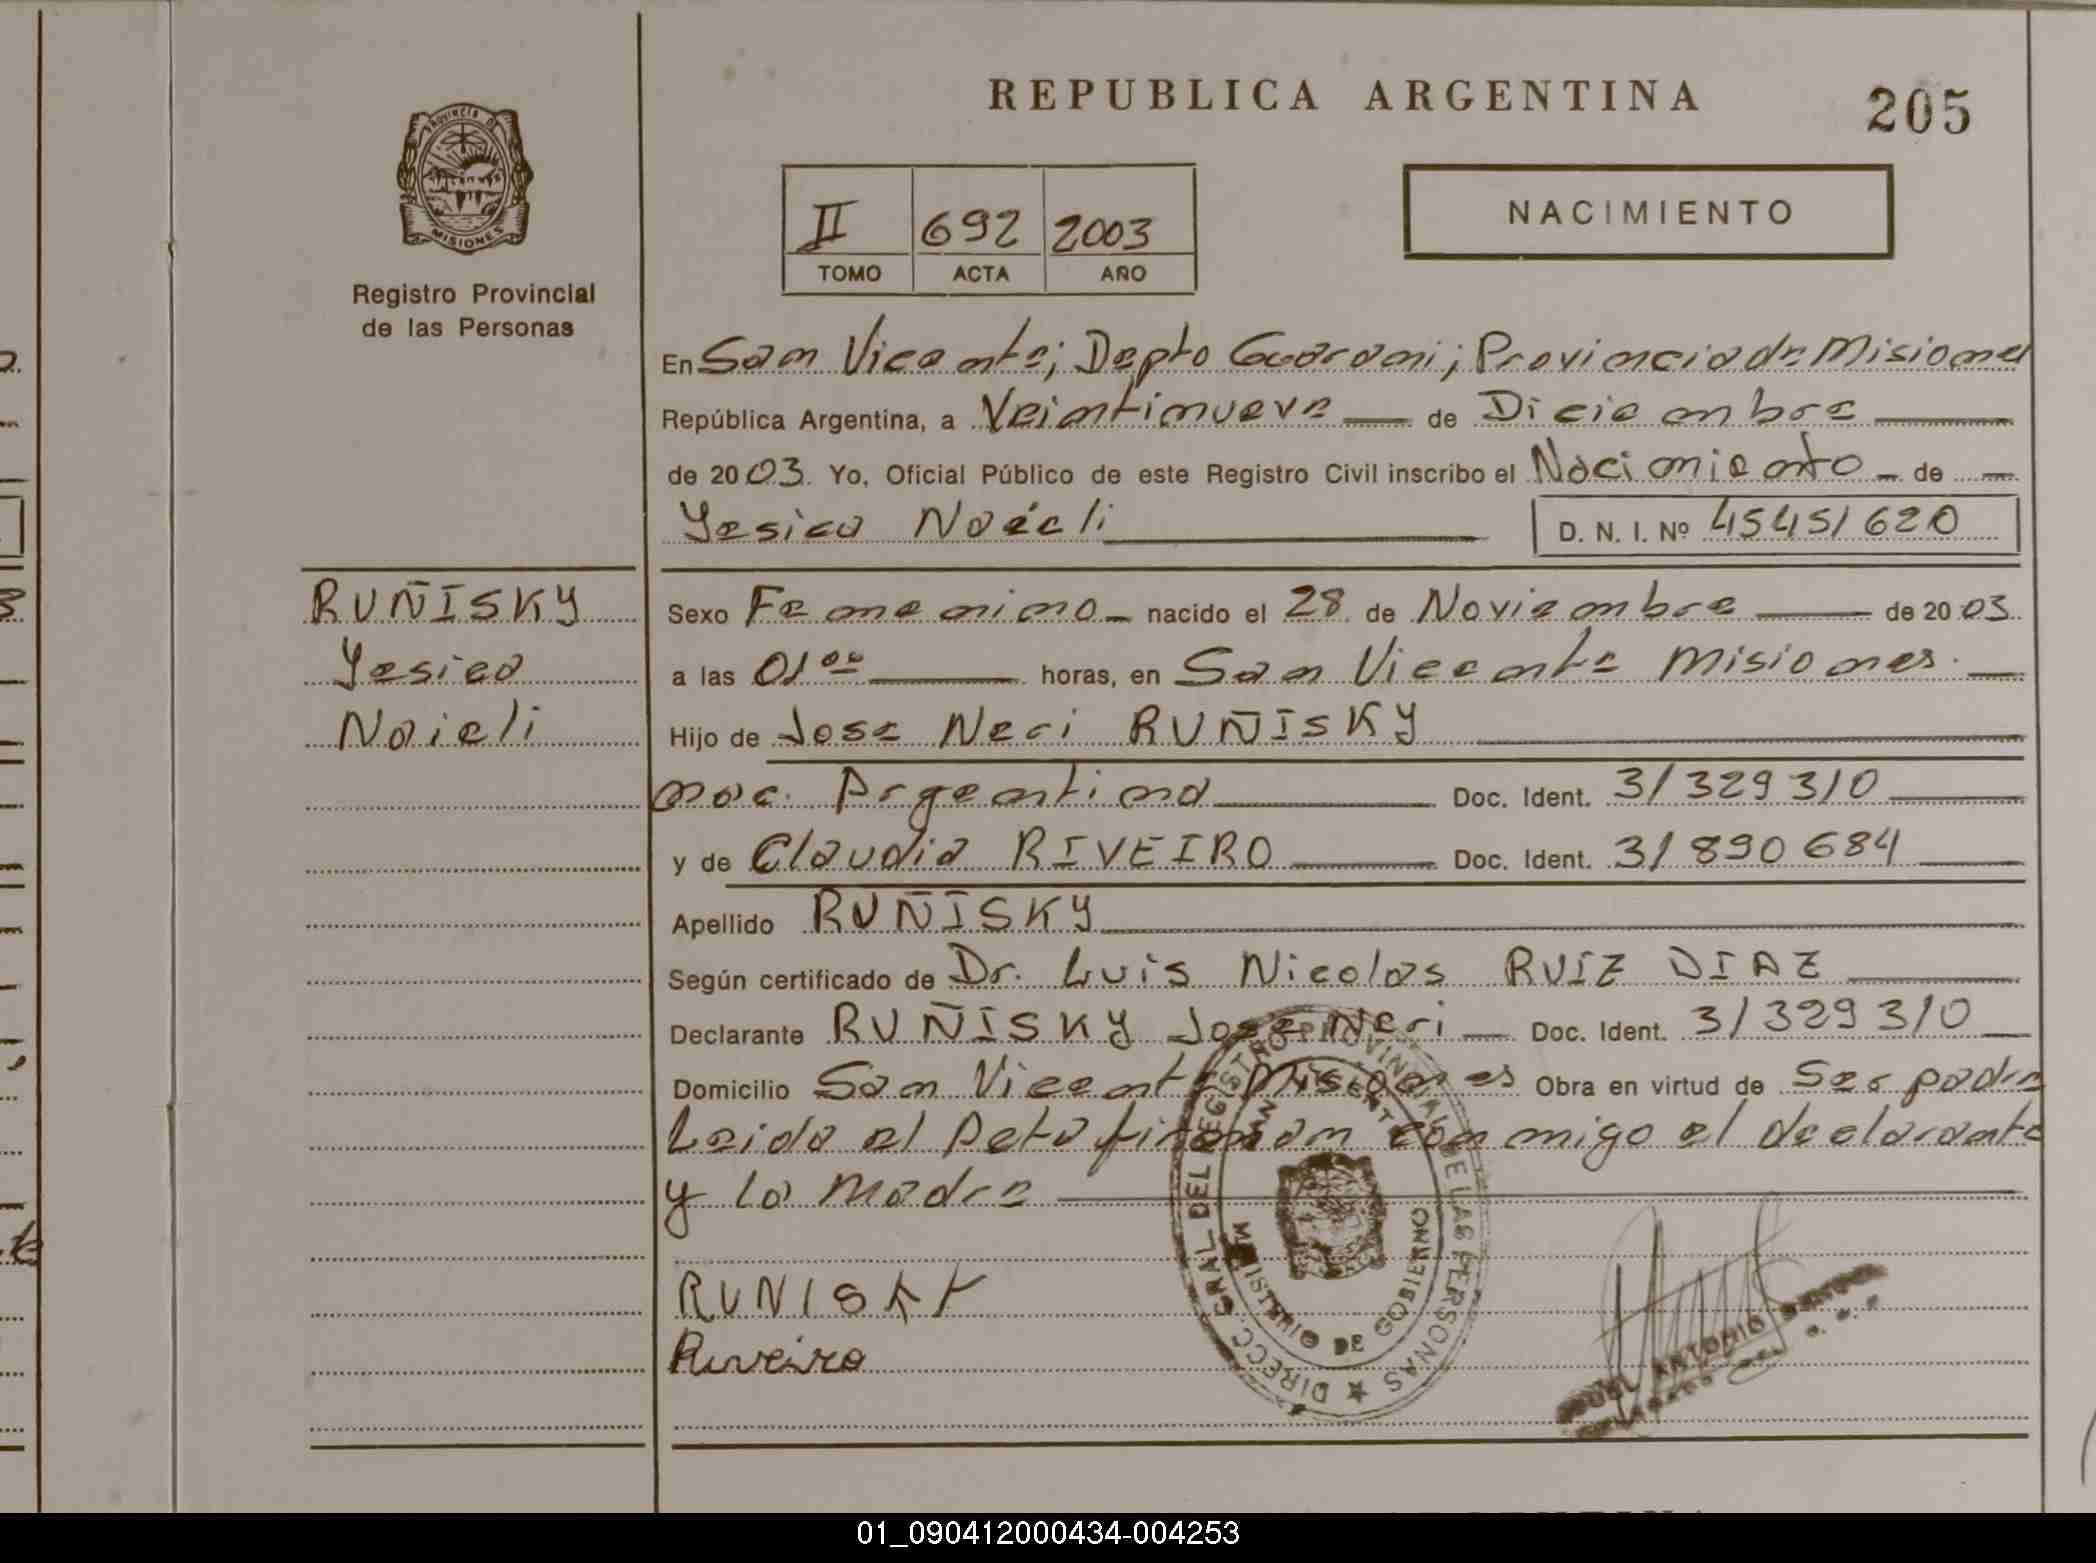 REPUBLICA ARGENTINA
205
PROVINCIA DE
MISIONES
Registro Provincial
de las Personas
II 692 2003
TOMO ACTA AÑO
NACIMIENTO
En San Vicente; Depto Guarani; Provincia de Misiones
República Argentina, a Veintinueve de Diciembre
de 2003. Yo, Oficial Público de este Registro Civil inscribo el Nacimiento de
Yesica Noéli
D. N. I. Nº 45451620
RUÑISKY
Yesica
Naieli
Sexo Femenino nacido el 28 de Noviembre de 2003
a las 01 00 horas, en San Vicente Misiones.
Hijo de Jose Neri RUÑISKY
nac. Argentina Doc. Ident. 31329310
y de Claudia RIVEIRO Doc. Ident. 31890684
Apellido RUÑISKY
Según certificado de Dr. Luis Nicolas RUIZ DIAZ
Declarante RUÑISKY Jose Neri Doc. Ident. 31329310
Domicilio San Vicente Misiones Obra en virtud de Ser padre
Leida el Acta firman conmigo el declarante
y la Madre
RUNISKY
Riveiro
DIRECC. GRAL. DEL REGISTRO PROVINCIAL DE LAS PERSONAS
SAN VICENTE
MINISTERIO DE GOBIERNO
ANTONIO
01_090412000434-004253